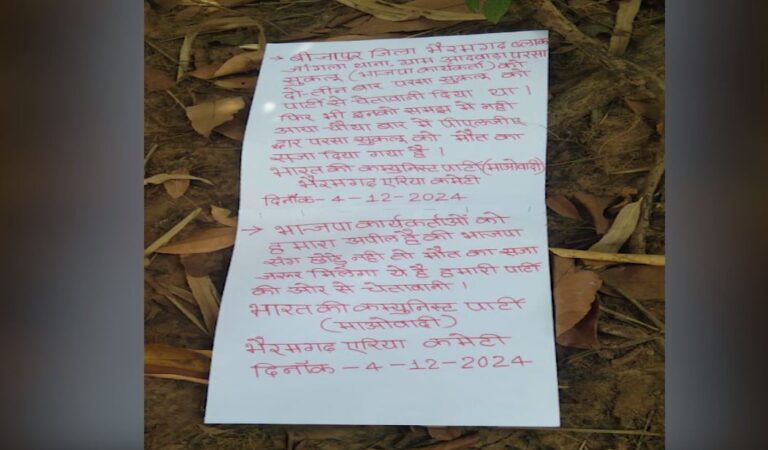 → बीजापुर जिला भैरमगढ़ ब्लाक
जांगला थाना, ग्राम आदवाड़ा परसा
सुकलू (भाजपा कार्यकर्ता) को
दो-तीन बार परसा सुकलू को
पार्टी से चेतावानी दिया था।
फिर भी इनको समझ मे नही
आया चौथा बार मे पीएलजीए
द्वार परसा सुकलू को मौत का
सजा दिया गया है।
भारत की कम्युनिस्ट पार्टी (माओवादी)
भैरमगढ़ एरिया कमेटी
दिनाँक-4-12-2024
→ भाजपा कार्यकर्ताओं को
हमारा अपील है की भाजपा
संग छोड़े नही तो मौत का सजा
जरूर मिलेगा ये है हमारी पार्टी
की ओर से चेतावानी।
भारत की कम्युनिस्ट पार्टी
(माओवादी)
भैरमगढ़ एरिया कमेटी
दिनाँक -4-12-2024